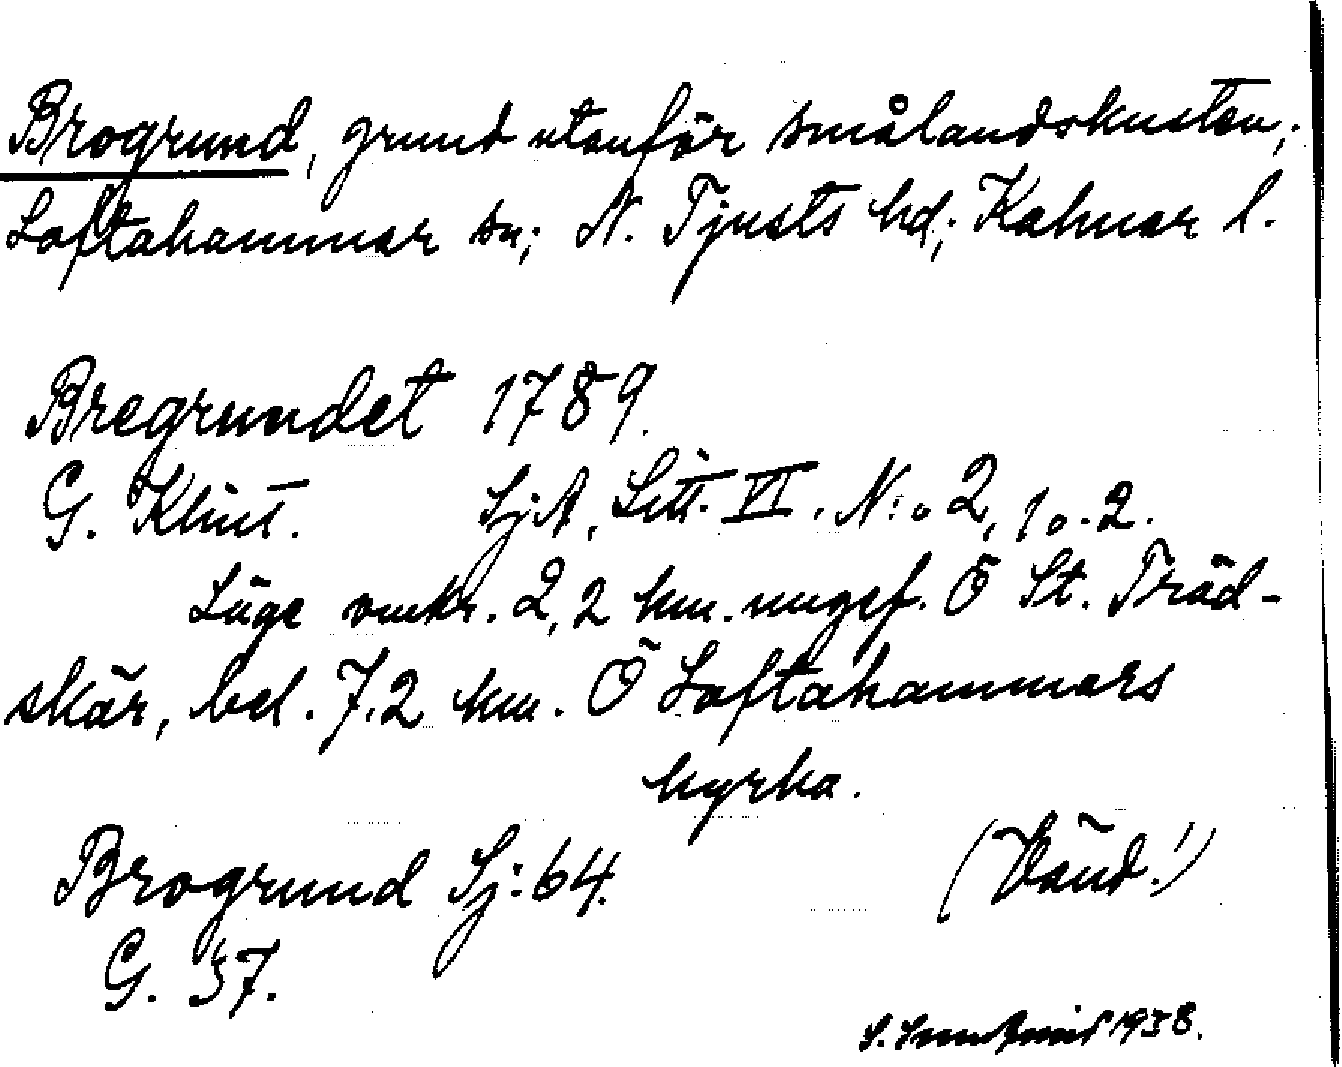 Brogrund, grund utanför smålandskusten;
Loftahammar sn; N. Tjusts hd; Kalmar l.
Bregrundet 1789.
G. Klint. SjA, Litt. VI. N:o 2, 1 o. 2.
Läge omkr. 2,2 km. ungef. Ö St. Träd-
skär, bel. 7.2 km. Ö Loftahammars
kyrka.
Brogrund Sj: 64.
(Vänd!)
G. 37.
S. 1938.